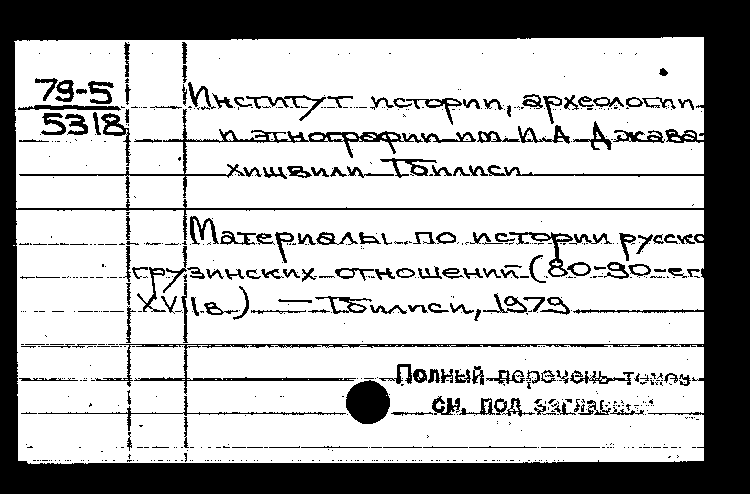 79-5
5318
Институт истории, археологии
и этнографии им. И. А. Джава-
хишвили. Тбилиси.
Материалы по истории русско
грузинских отношений (80-90-ег
XVII в.) — Тбилиси, 1979
Полный перечень томов
см. под заглавием